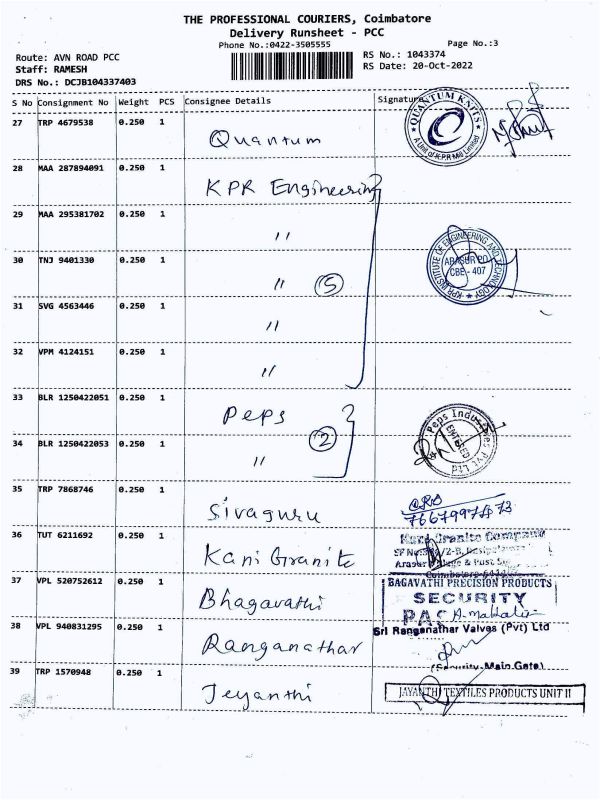 THE PROFESSIONAL COURIERS, Coimbatore
Delivery Runsheet - PCC
Phone No.:0422-3505555
Page No.:3
Route: AVN ROAD PCC
RS No.: 1043374
Staff: RAMESH
RS Date: 20-Oct-2022
DRS No.: DCJB104337403
S No Consignment No Weight PCS Consignee Details Signature
27 TRP 4679538 0.250 1 Quantum
QUANTUM KNITS
A Unit of K.P.R Mill Limited
28 MAA 287894091 0.250 1 KPR Engineering
29 MAA 295381702 0.250 1 "
30 TNJ 9401330 0.250 1 " 5
KPR INSTITUTE OF ENGINEERING AND TECHNOLOGY
ARASUR PO
CBE - 407
31 SVG 4563446 0.250 1 "
32 VPM 4124151 0.250 1 "
33 BLR 1250422051 0.250 1 Peps
Peps Industries Pvt Ltd
34 BLR 1250422053 0.250 1 " 2
35 TRP 7868746 0.250 1 Sivaguru
36 TUT 6211692 0.250 1 Kani Granite
Granite Company
37 VPL 520752612 0.250 1 Bhagavathi
BAGAVATHI PRECISION PRODUCTS
SECURITY
38 VPL 940831295 0.250 1 Ranganathar
Sri Ranganathar Valves (Pvt) Ltd
(Security-Main Gate)
39 TRP 1570948 0.250 1 Jeyanthi
JAYANTHI TEXTILES PRODUCTS UNIT II